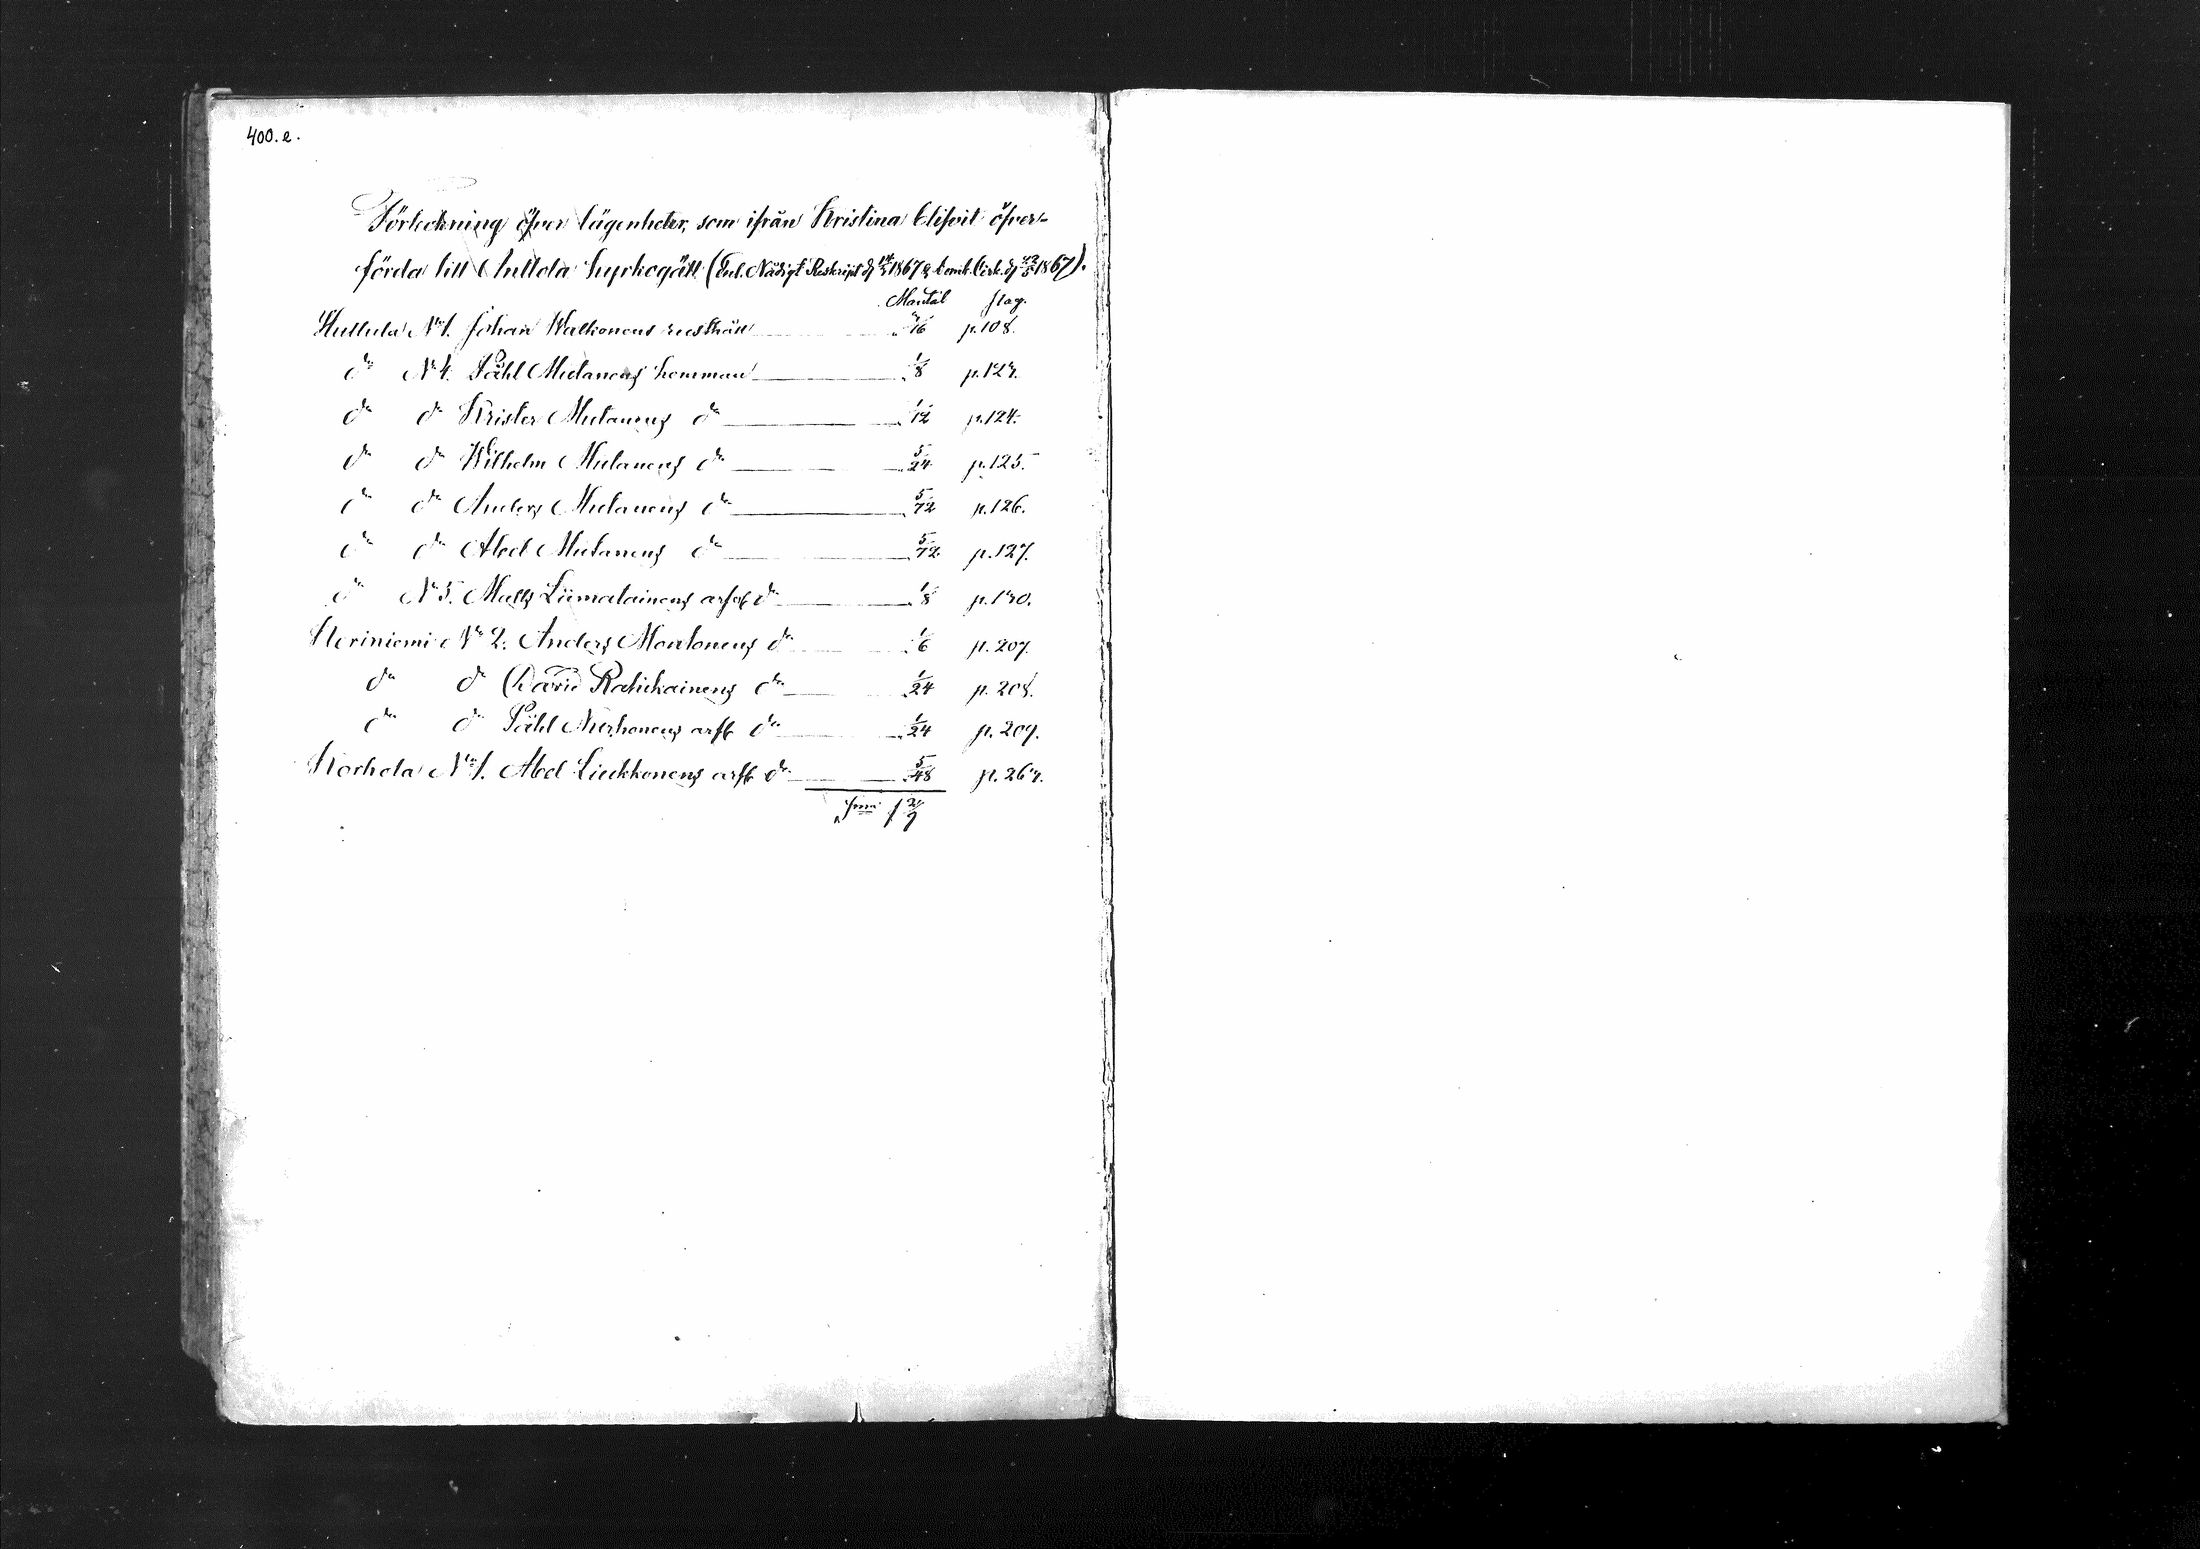 400. e.
Förteckning öfver lägenheter, som ifrån Kristina blifvit öfver-
förda till Anttola kyrkogäll (Enl. Nådigt Reskript d 1867 & Domk. Cirk. d 1867).
Mantal pag.
Huttula No 1. Johan Walkonens rusthåll 3/16 p. 108.
do No 4. Påhl Mutanens hemman 1/8 p. 123.
do do Krister Mutanens do 1/12 p. 124.
do do Wilhelm Mutanens do 5/24 p. 125.
do do Anders Mutanens do 5/72 p. 126.
do do Abel Mutanens do 5/72 p. 127.
do No 5. Matts Liimatainens arfvs do 1/8 p. 130.
Heriniemi No 2. Anders Montonens do 1/6 p. 207.
do do David Rahikainens do 1/24 p. 208.
do do Påhl Nurhonens arfs do 1/24 p. 209.
Korhola No 1. Abel Liukkonens arfs do 5/48 p. 263.
Sma 1 2/9